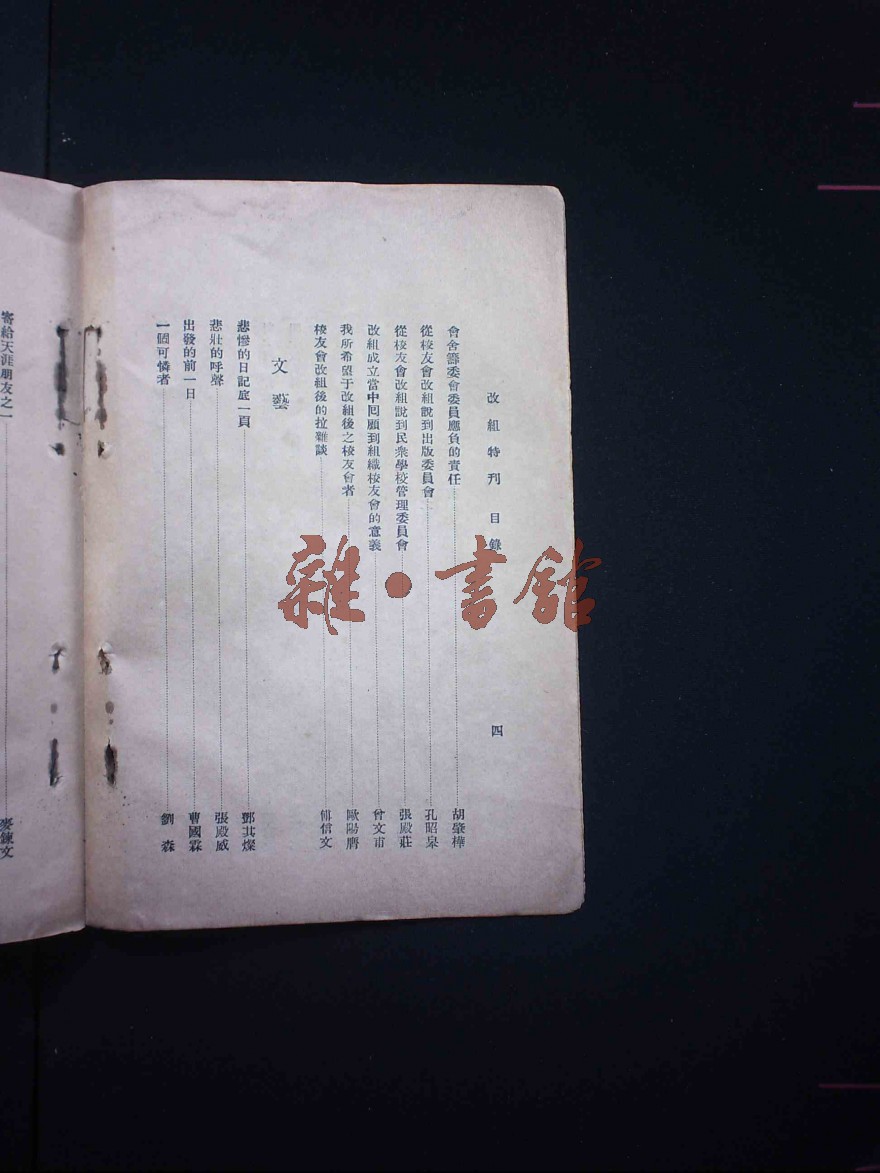 改組特刊 目錄 四
會舍籌委會委員應負的責任 胡肇樺
從校友會改組說到出版委員會 孔昭泉
從校友會改組說到民衆學校管理委員會 張殿莊
改組成立當中回顧到組織校友會的意義 曾文市
我所希望于改組後之校友會者 歐陽膺
校友會改組後的拉雜談 信文
文藝
悲慘的日記庭一頁 鄧其燦
悲壯的呼聲 張殿威
出發的前一日 曹國霖
一個可憐者 劉森
寄給天涯朋友之一 麥鍊文
雜·書館